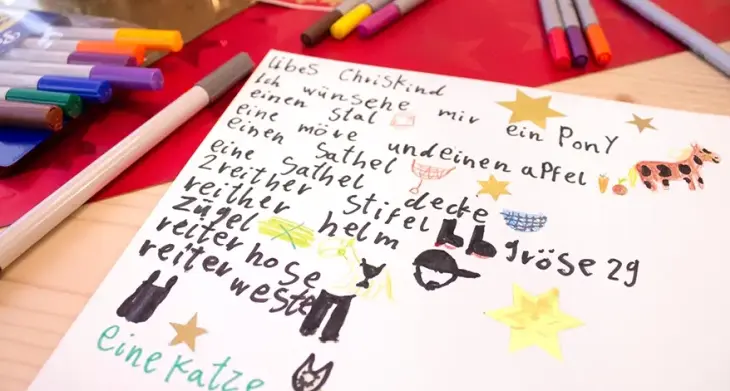 libes Chriskind
Ich wünsche mir ein Pony
einen Stal
eine möre undeinen aPfel
einen Sathel
eine Sathel decke
2reither Stifel größe 29
reither helm
zügel
reiter hose
reiter weste
eine Katze